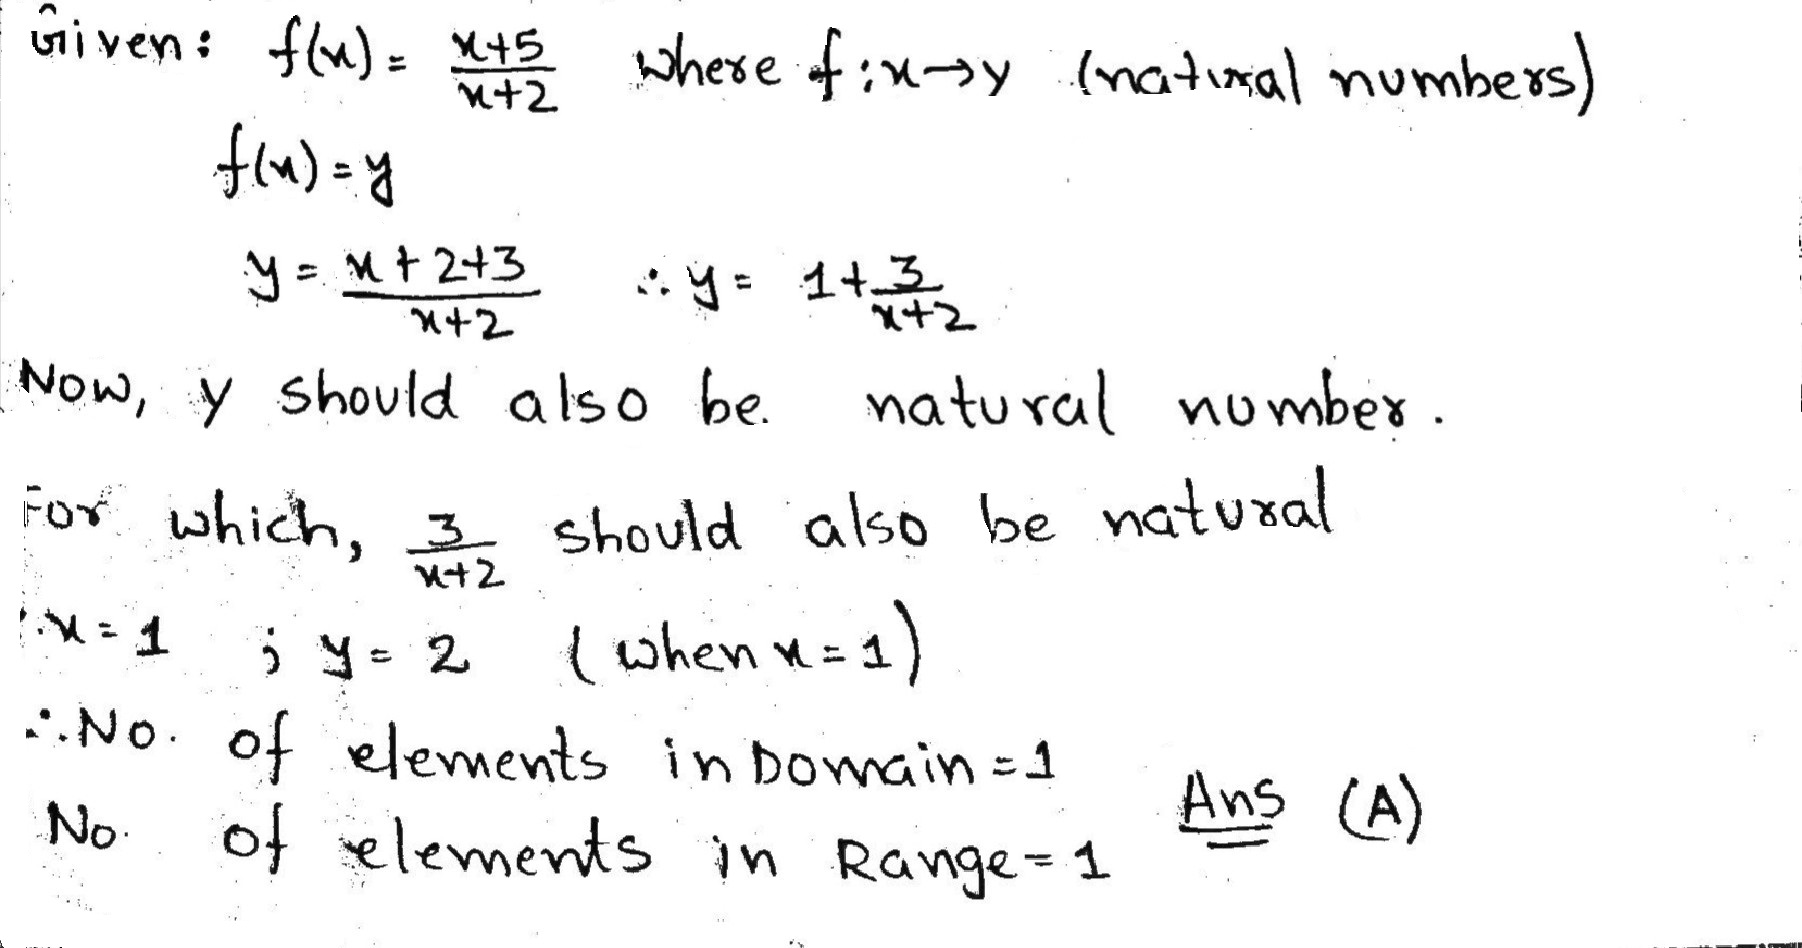 Given: f(x) = x+5/x+2 where f : x→y (natural numbers)
f(x) = y
y = x+2+3/x+2 ∴ y = 1+3/x+2
Now, y should also be natural number.
For which, 3/x+2 should also be natural
∴ x = 1 ; y = 2 (when x = 1)
∴ No. of elements in Domain = 1
No. of elements in Range = 1 Ans (A)